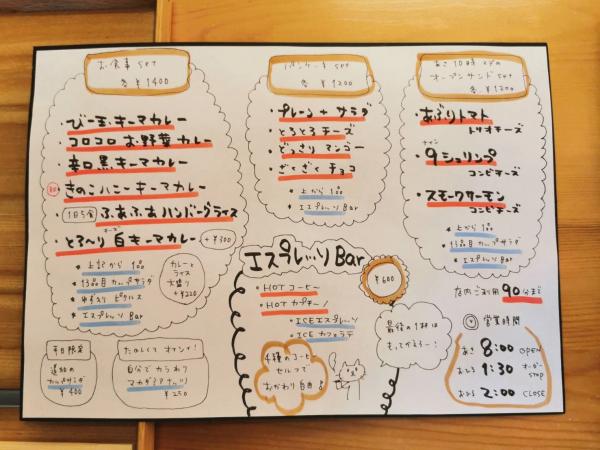 お食事 set
各 ¥1400
・びー玉キーマカレー
・コロコロお野菜カレー
・辛口黒キーマカレー
・きのこハニーキーマカレー
・1日5食 ふあふあハンバーグライス
・とろ〜り白キーマカレー +¥300
・上記から 1品
・13品目カップサラダ
・ゆずスリピクルス
・エスプレッソ Bar
カレーと
ライス
大盛り
+¥220
平日限定
¥400
たのしくてオイシイ!
自分でカラわり
マカダミアナッツ
¥250
パンケーキ set
各 ¥1200
・プレーン+サラダ
・とろとろチーズ
・どっさりマンゴー
・ざくざくチョコ
・上から 1品
・エスプレッソ Bar
エスプレッソ Bar
¥600
・HOT コーヒー
・HOT カプチーノ
・ICE エスプレッソ
・ICE カフェラテ
4種のコーヒー
セルフで
おかわり自由♪
最後の1杯は
もってかえろー!
あさ10時までの
オープンサンド set
各 ¥1200
・あぶりトマト
トリオチーズ
・9シュリンプ
ナイン
コンビチーズ
・スモークサーモン
コンビチーズ
・上から 1品
・13品目カップサラダ
・エスプレッソ Bar
店内ご利用 90分まで
営業時間
あさ 8:00 OPEN
おひる 1:30 オーダーSTOP
おひる 2:00 CLOSE